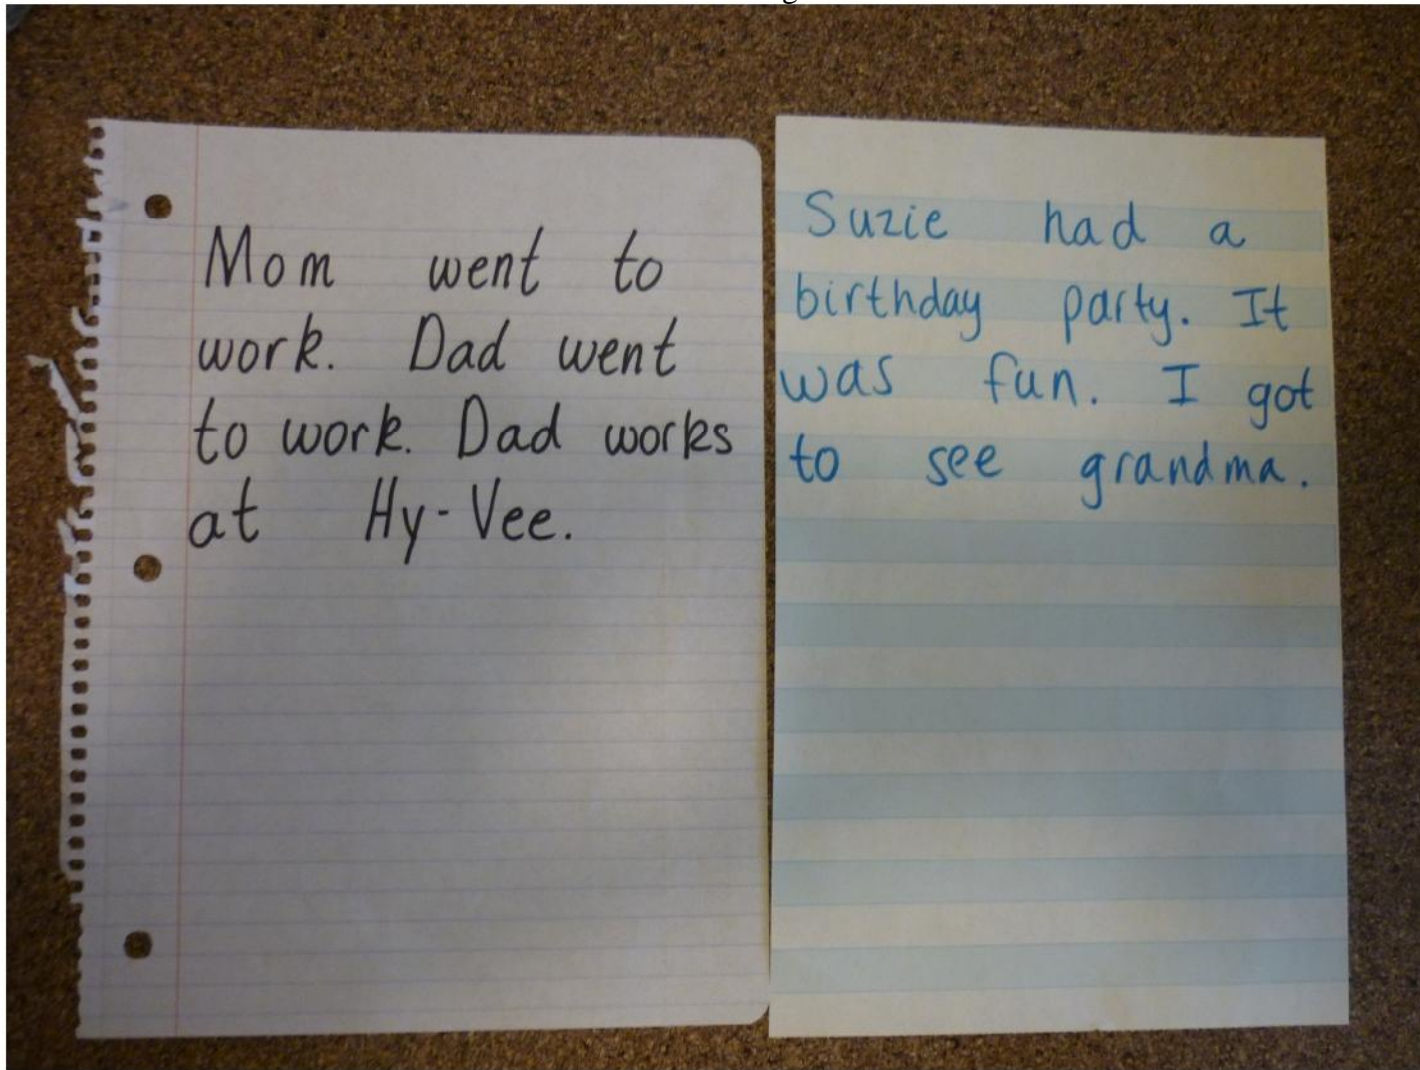 Mom went to
work. Dad went
to work. Dad works
at Hy-Vee.
Suzie had a
birthday party. It
was fun. I got
to see grandma.